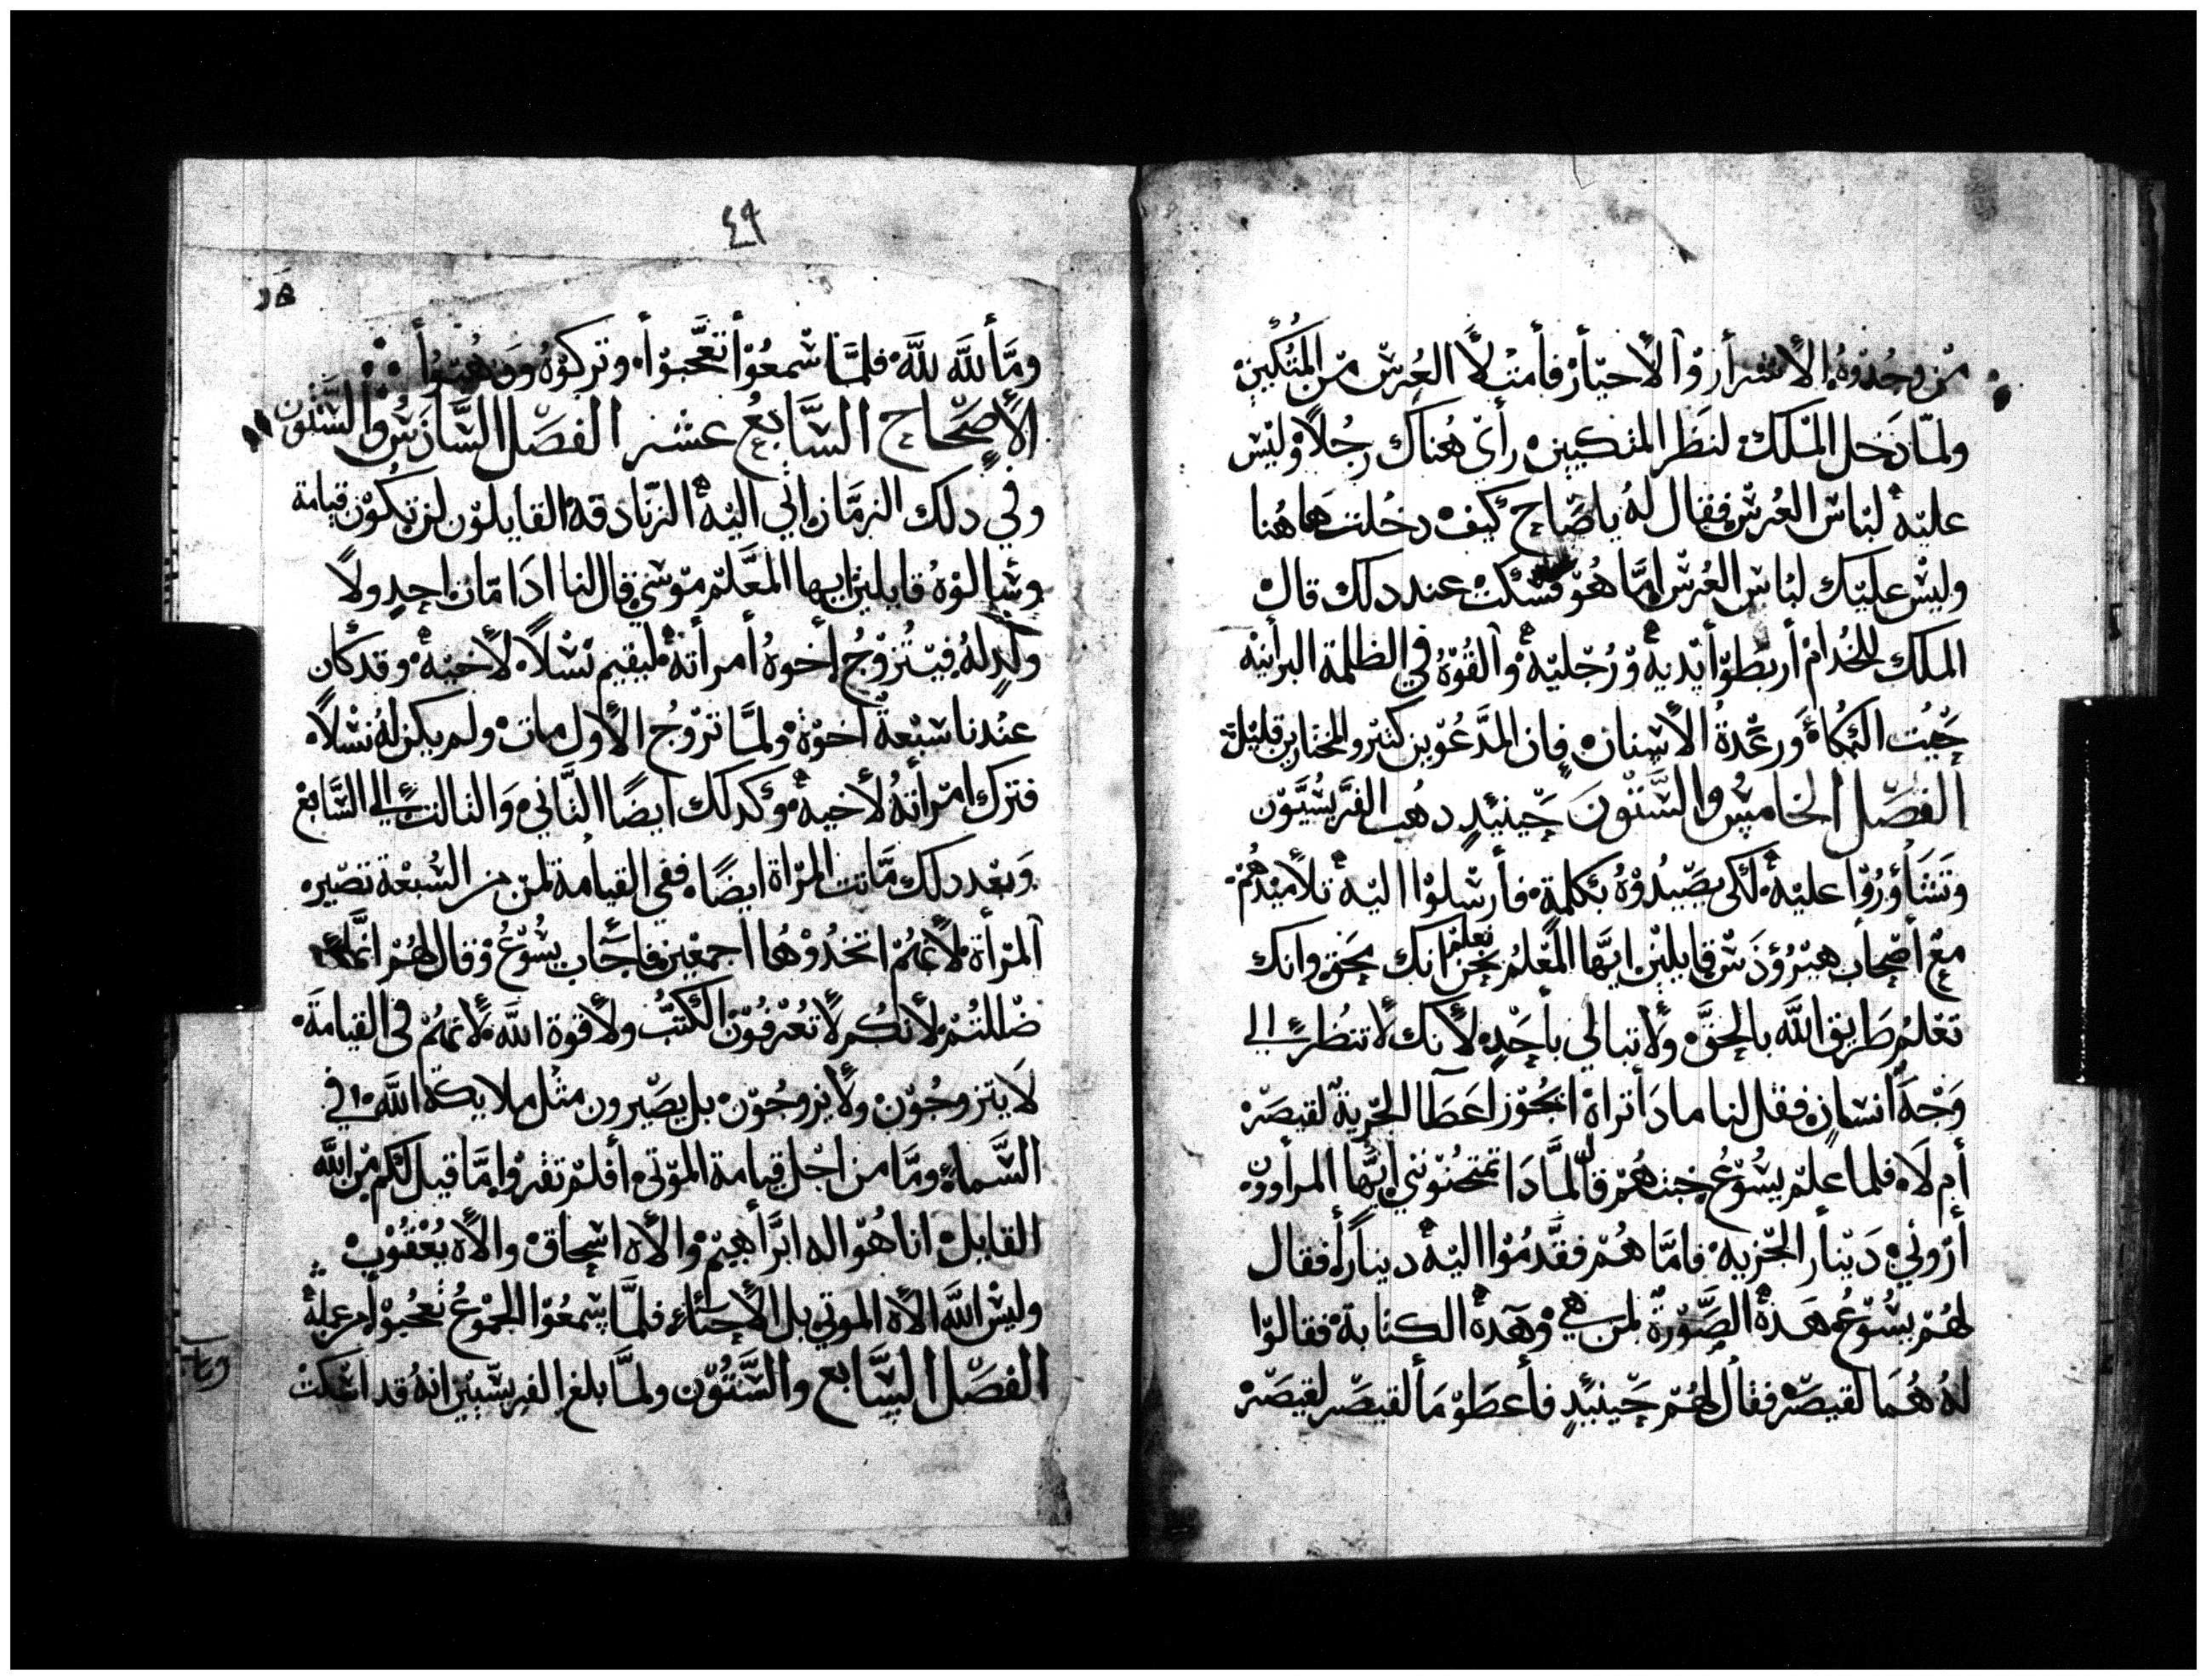 من وجدوه الاشرأر والاحيأر فأمتلأ العرس من المتكين
ولما دخل الملك لنظر المتكيين رأي هناك رجلاً وليس
عليه لباس العرس فقال له ياصاح كيف دخلت هاهنا
وليس عليك لباس العرس اما هو فسكت عند دلك قال
الملك للخدام أربطوا أيديه ورجليه والقوه في الظلمة البرأنيه
حيت البكاء ورعدة الاسنان فان المدعوين كتير والمختارين قليلة
الفصل الخامس والستون حينيدٍ دهب الفريسيون
وتشأوروا عليه لكي يصيدوه بكلمة فأرسلوا اليه تلاميدهم
مع أصحاب هيرودس قايلين ايها المعلم نحن نعلم انك محق وانك
تعلم طريق الله بالحق ولا تبالي بأحدٍ لأنك لا تنظر الي
وجه انسان فقل لنا مادا تراه ايجوز اعطا الجزية لقيصر
أم لا فلما علم يسوع خبتهم قال لمادا تمتحنوني ايها المرأوون
أروني دينار الجزية فاما هم فقدموا اليه ديناراً فقال
لهم يسوع هذه الصورة لمن هي وهذه الكتابة فقالوا
له هما لقيصر فقال لهم حينيدٍ فأعطوا ما لقيصر لقيصر
٤٩
ومأ لله لله فلما سمعوا تعجبوا وتركوه ودهبوا
الاصحاح السابع عشر الفصل السادس والستون
وفي دلك الزمان اتي اليه الزنادقة القايلون لن تكون قيامة
وسالوه قايلين ايها المعلم موسي قال لنا ادا مات احدٍ ولا
ولدٍ له فيتزوج أخوه أمرأته ليقيم نسلاً لأخيه وقد كان
عندنا سبعة اخوة ولما تزوج الأول مات ولم يكن له نسلاً
فترك امرأته لأخيه وكدلك ايضا التاني والتالت الي السابع
وبعد دلك ماتت المرأة ايضاً ففي القيامة لمن من السبعة تصير
المرأة لأنهم اتخدوها اجمعين فاجاب يسوع وقال لهم انما
ضللتم لأنكم لا تعرفون الكتب ولا قوة الله لأنهم في القيامة
لا يتزوجون ولا يزوجون بل يصيرون مثل ملايكة الله في
السماء وما من اجل قيامة الموتي أفلم تقروا ما قيل لكم من الله
القايل انا هو اله ابرأهيم والاه اسحاق والاه يعقوب
وليس الله الاه الموتي بل الأحياء فلما سمعوا الجموع تعجبوا من علمه
الفصل السابع والستون ولما بلغ الفريسيين انه قد اسكت